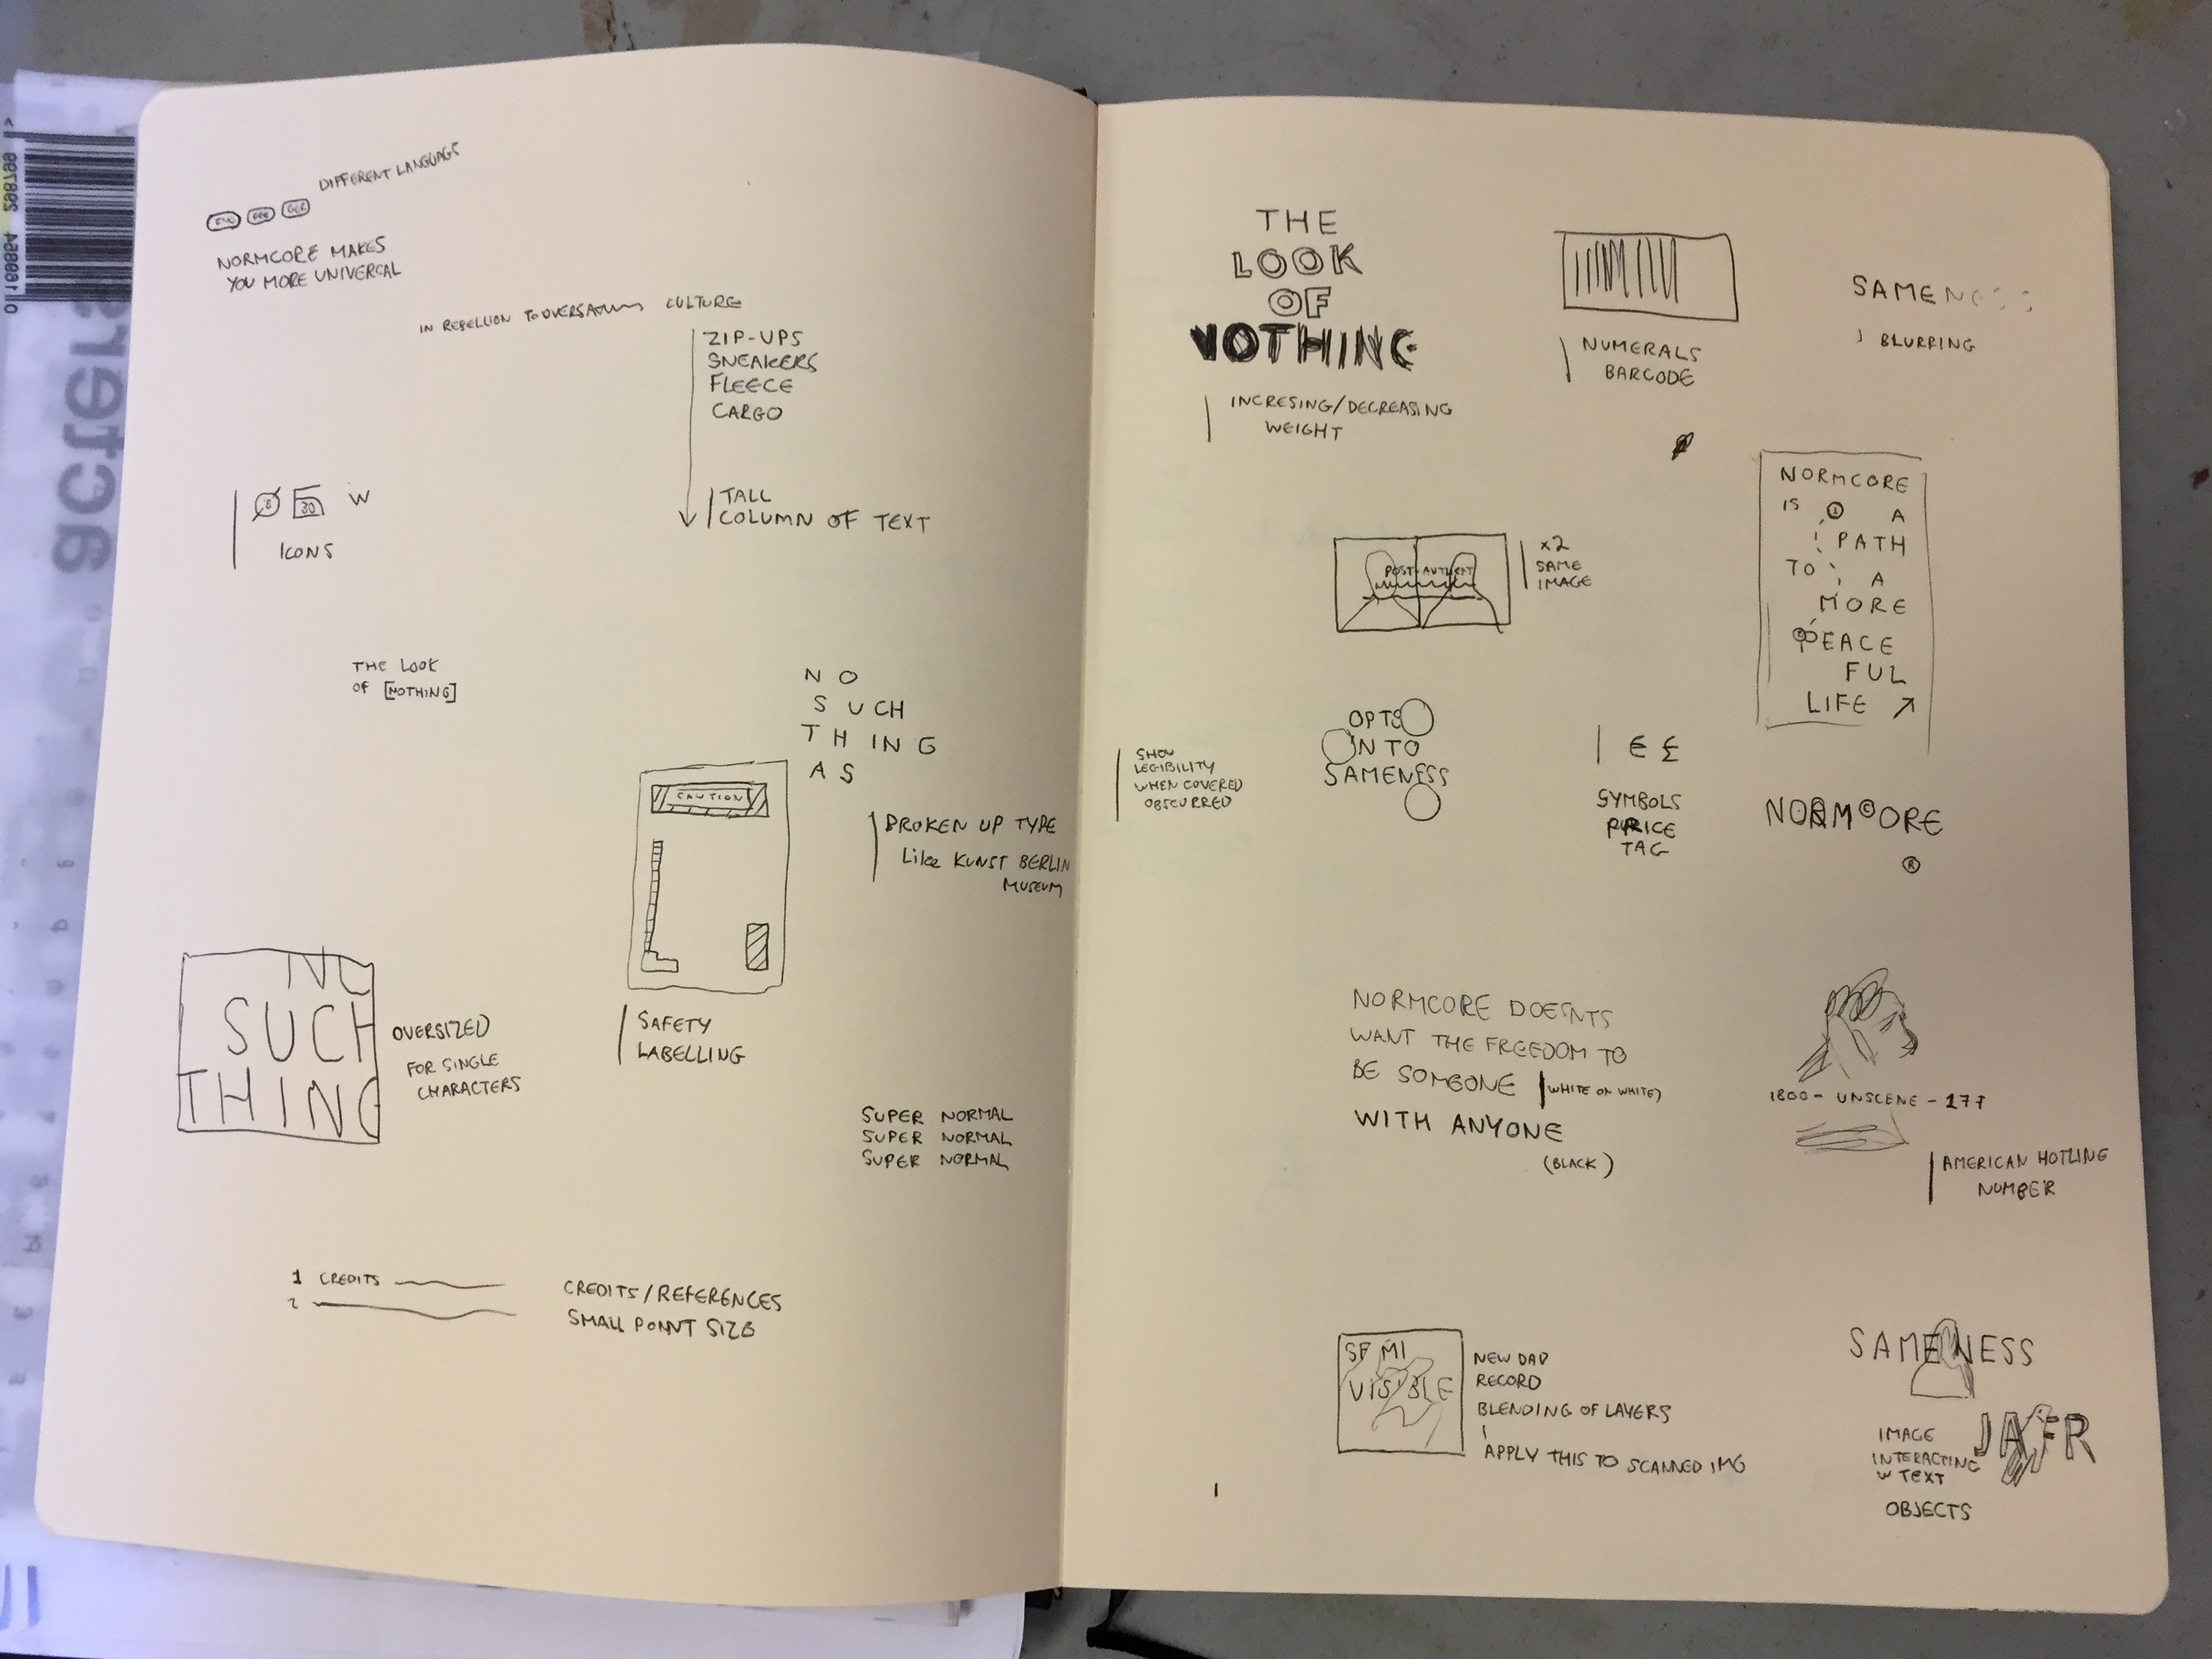 DIFFERENT LANGUAGS
NORMCORE MAKES
YOU MORE UNIVERCAL
IN REBELLION TO CULTURE
ZIP-UPS
SNEAKERS
FLEECE
CARGO
TALL
COLUMN OF TEXT
30
W
ICONS
THE LOOK
OF [NOTHING]
NO
SUCH
THING
AS
CAUTION
BROKEN UP TYPE
Like KUNST BERLIN
MUSEUM
SAFETY
LABELLING
SUCH
THING
OVERSIZED
FOR SINGLE
CHARACTERS
SUPER NORMAL
SUPER NORMAL
SUPER NORMAL
1 CREDITS
2
CREDITS/REFERENCES
SMALL POINT SIZE
THE
LOOK
OF
NOTHING
INCRESING/DECREASING
WEIGHT
NUMERALS
BARCODE
SAMENESS
BLURRING
POST-AUTHENT
x2
SAME
IMAGE
NORMCORE
IS A
PATH
TO A
MORE
PEACE
FUL
LIFE ↗
SHOW
LEGIBILITY
WHEN COVERED
OBSCURRED
OPTS
INTO
SAMENESS
€ £
SYMBOLS
PRICE
TAG
NORM©ORE
®
NORMCORE DOESNTS
WANT THE FREEDOM TO
BE SOMEONE (WHITE ON WHITE)
WITH ANYONE
(BLACK)
1800 - UNSCENE - 177
AMERICAN HOTLINE
NUMBER
SEMI
VISIBLE
NEW DAD
RECORD
BLENDING OF LAYERS
APPLY THIS TO SCANNED IMG
SAMENESS
IMAGE
INTERACTING
W TEXT
OBJECTS